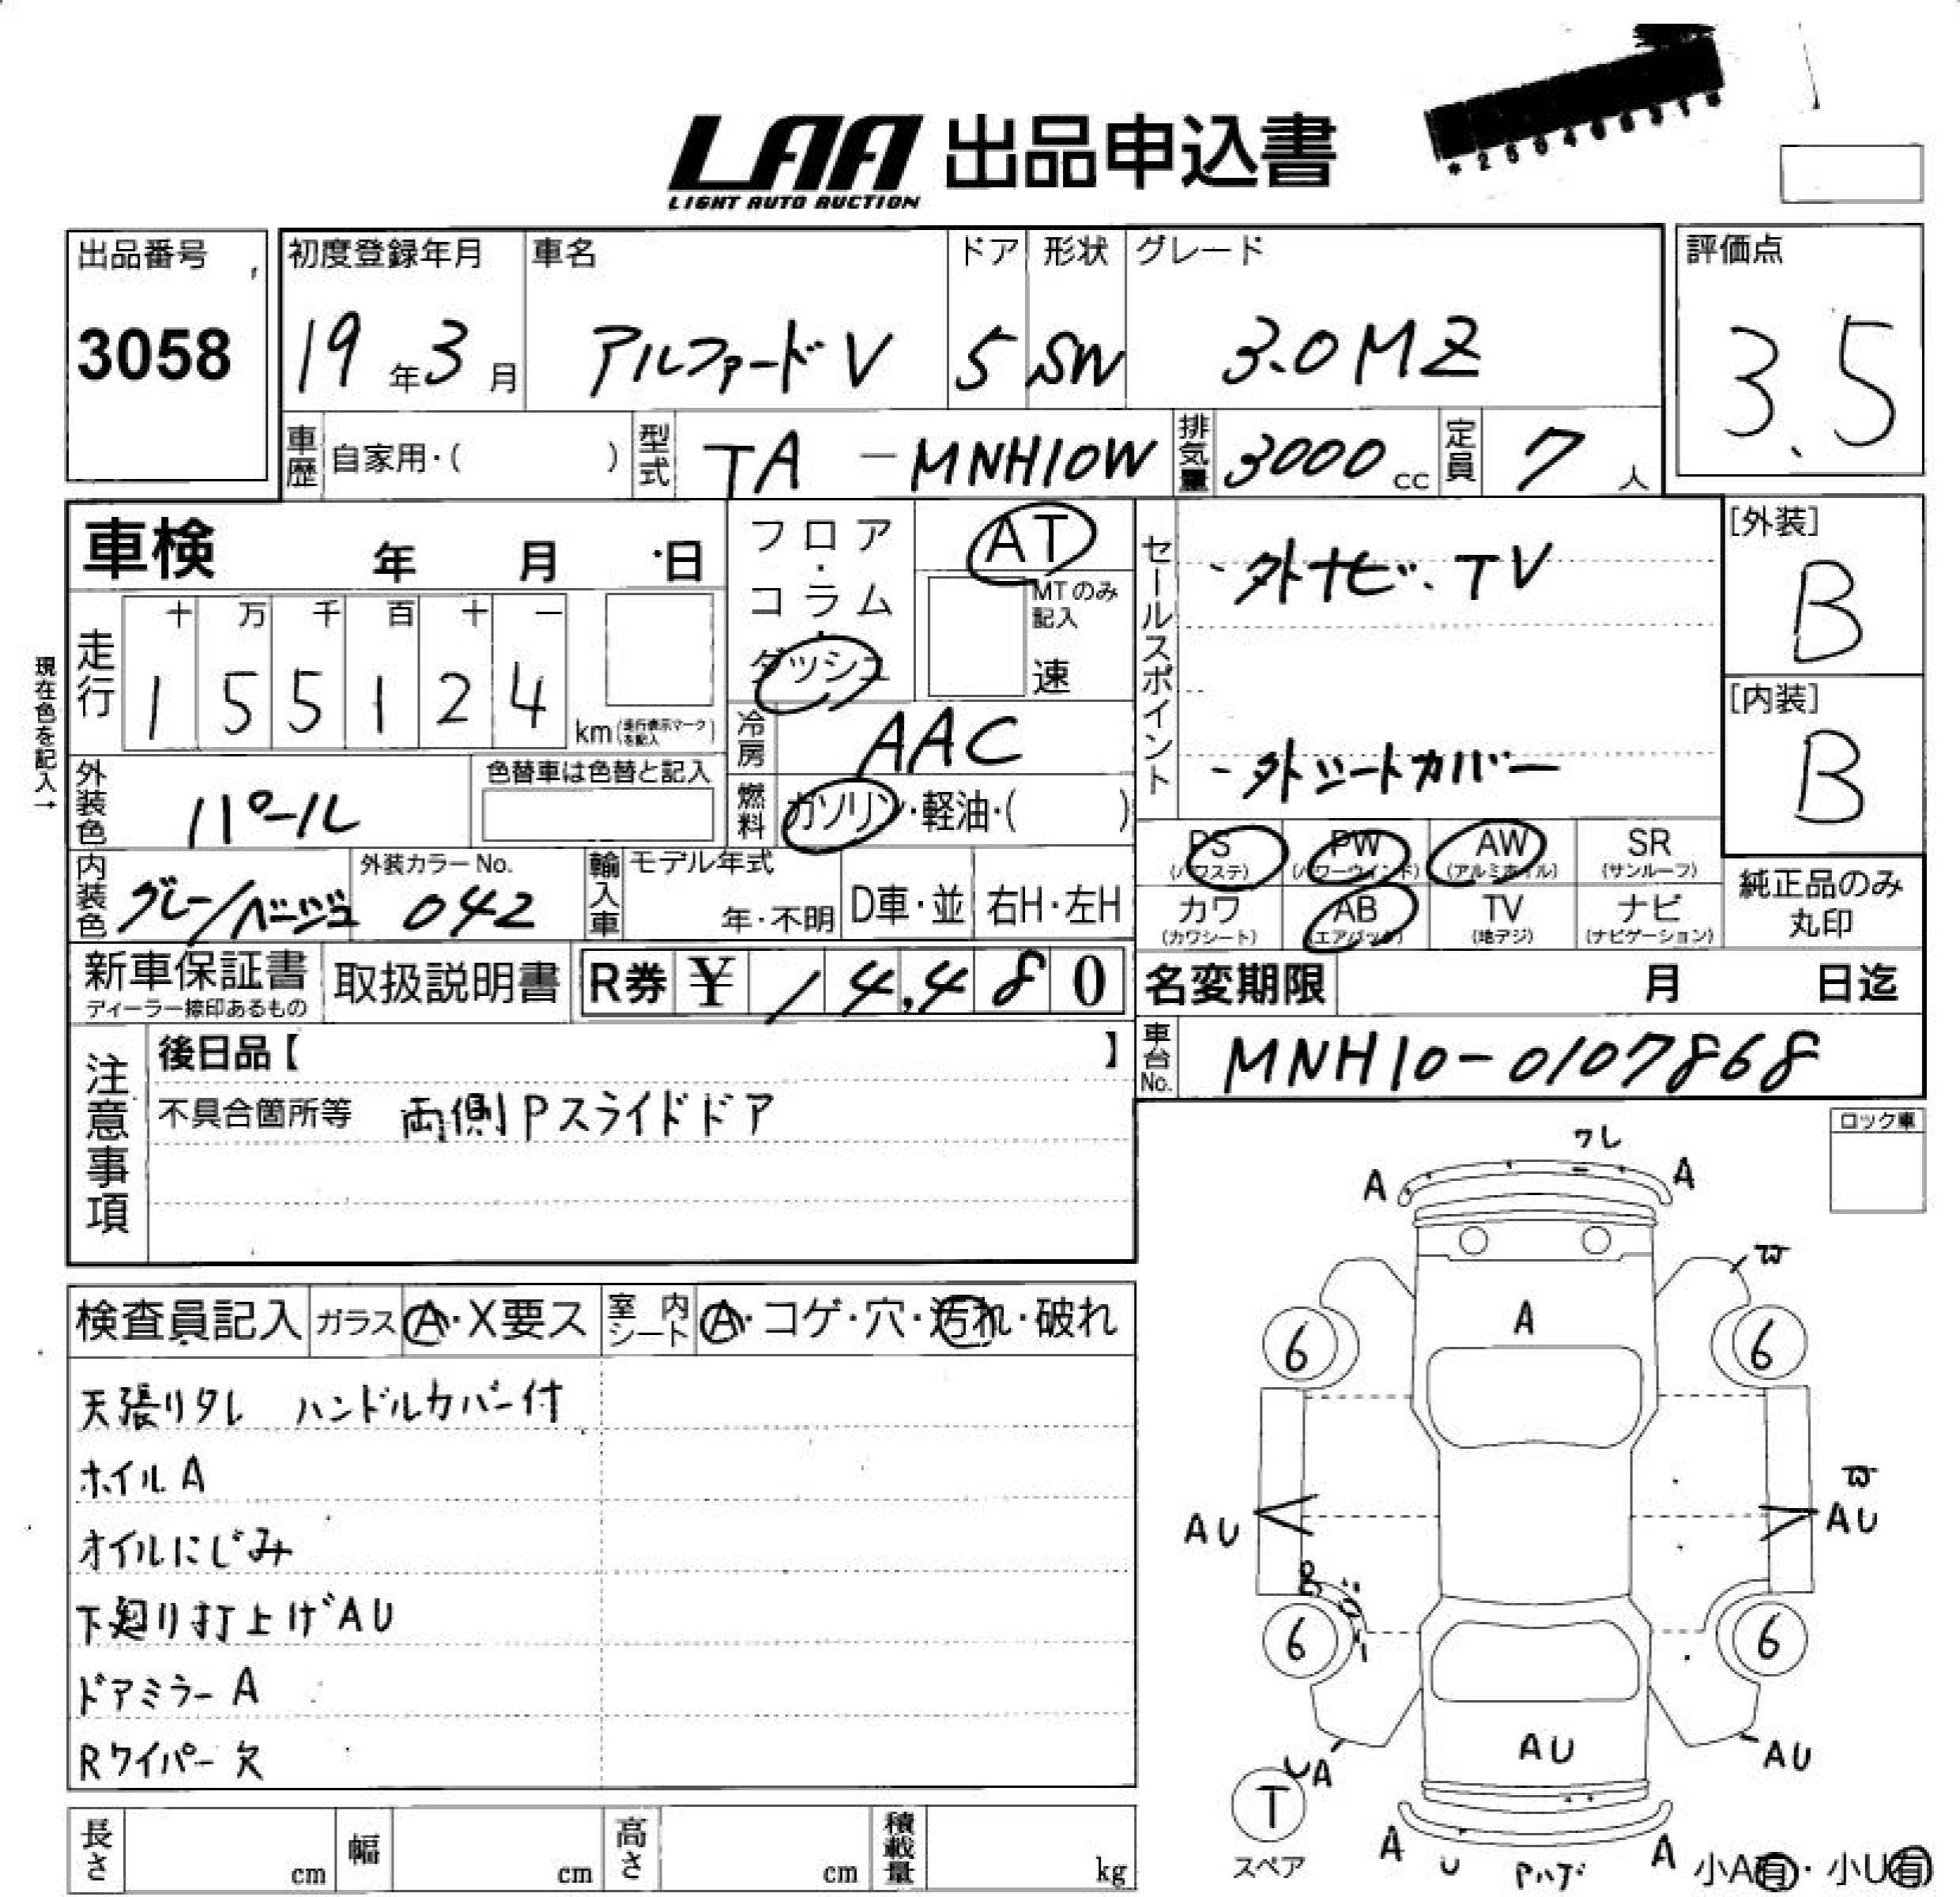 LAA 出品申込書
LIGHT AUTO AUCTION
出品番号
3058
初度登録年月
19年3月
車名
アルファードV
ドア
5
形状
SW
グレード
3.0MZ
評価点
3.5
車歴 自家用・( )
型式 TA-MNH10W
排気量 3000cc
定員 7人
車検 年 月 日
フロア・コラム・ダッシュ
AT
MTのみ記入
速
セールスポイント
・外ナビ・TV
・外シートカバー
[外装]
B
[内装]
B
現在色を記入→
走行
十 万 千 百 十 一
1 5 5 1 2 4
km(走行表示マークを記入)
冷房 AAC
外装色 パール
色替車は色替と記入
燃料 ガソリン・軽油・( )
PS (パワステ) PW (パワーウインド) AW (アルミホイル) SR (サンルーフ)
カワ (カワシート) AB (エアバック) TV (地デジ) ナビ (ナビゲーション)
純正品のみ丸印
内装色 グレー/ベージュ
外装カラーNo. 042
輸入車 モデル年式
年・不明 D車・並 右H・左H
新車保証書
ディーラー捺印あるもの
取扱説明書
R券 ¥ 14,480
名変期限 月 日迄
車台No. MNH10-0107868
注意事項
後日品【 】
不具合箇所等 両側Pスライドドア
ロック車
検査員記入 ガラス A・X要ス 室内シート A・コゲ・穴・汚れ・破れ
天張りタレ ハンドルカバー付
ホイルA
オイルにじみ
下廻り打上げAU
ドアミラーA
Rワイパー欠
ワレ
A A
A
6 6
AU AU
6 6
AU
UA AU
T
スペア
A U A
小A有・小U有
長さ cm 幅 cm 高さ cm 積載量 kg